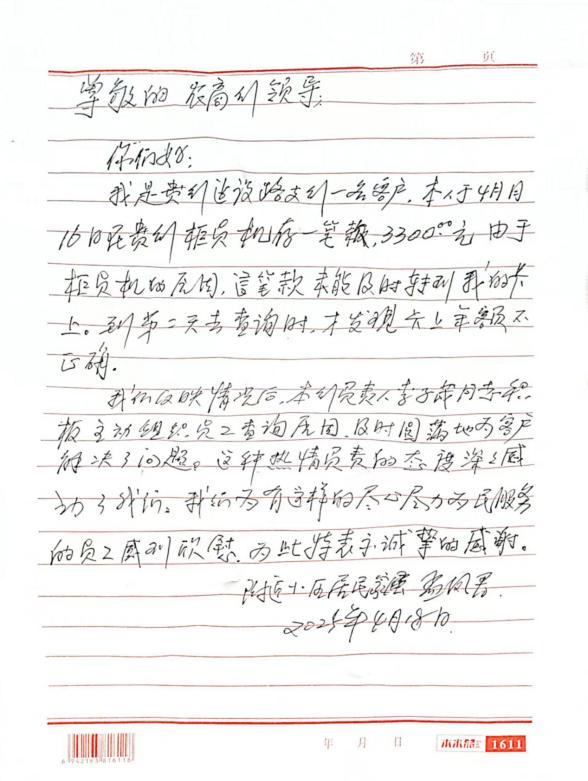 第 页
尊敬的农商行领导:
你们好:
我是贵行建设路支行一名客户,本人于4月
16日在贵行柜员机存一笔款,3300.00元 由于
柜员机的原因,這笔款未能及时转到我的卡
上。到第二天去查询时,才发现卡上余额不
正确。
我们反映情况后,本行负责人李子年同志积
极主动组织员工查询原因,及时圆满地为客户
解决了问题。这种热情负责的态度深深感
动了我们。我们为有这样的尽心尽力为民服务
的员工感到欣慰,为此特表示诚挚的感谢。
附近小区居民
2025年4月18日
6942163816118
年 月 日
1611